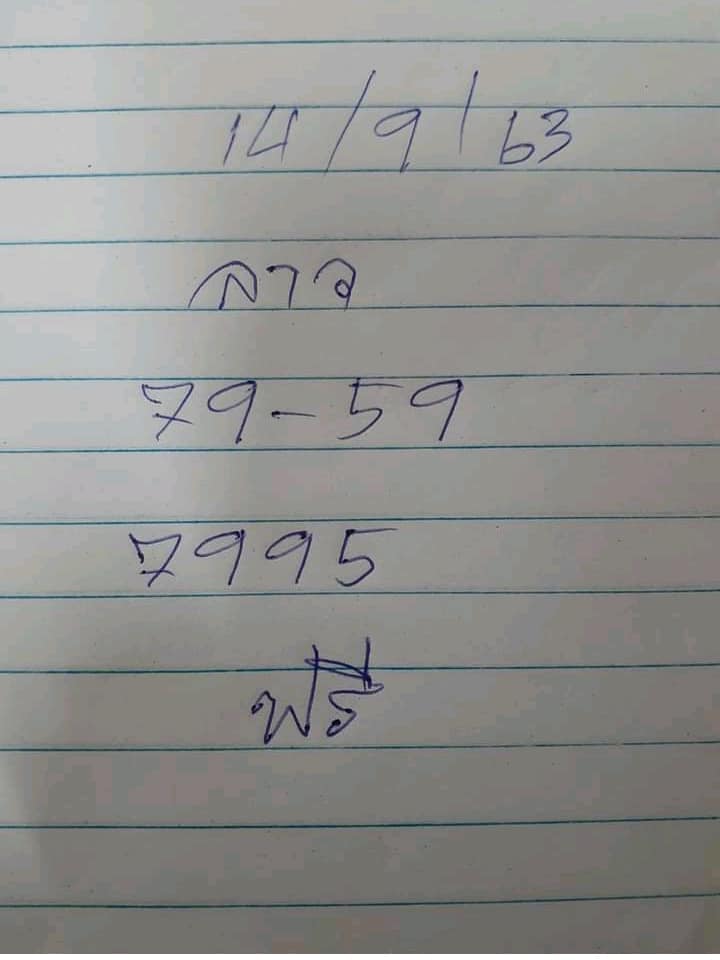 14/9/63
ลาว
79-59
7995
ฟรี